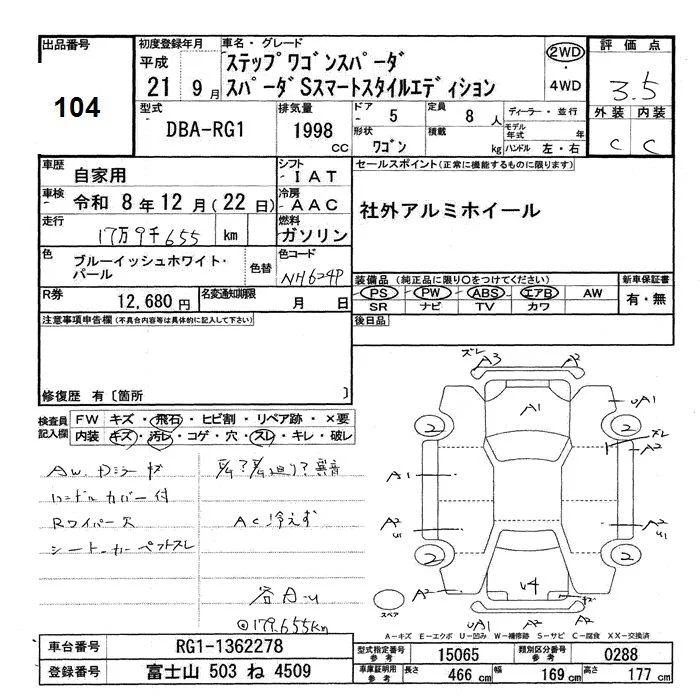 出品番号
104
初度登録年月
平成
21 9月
車名・グレード
ステップワゴンスパーダ
スパーダSスマートスタイルエディション
2WD
・
4WD
評価点
3.5
外装 内装
C C
型式
DBA-RG1
排気量
1998 cc
ドア
- 5
定員
8 人
形状
ワゴン
積載
kg
ディーラー・並行
モデル年式 年
ハンドル 左・右
車歴
自家用
シフト
- IAT
車検
令和 8年 12月(22日)
冷房
- AAC
走行
17万9千655 km
燃料
ガソリン
セールスポイント(正常に機能するものに限ります)
社外アルミホイール
色
ブルーイッシュホワイト・
パール
色替
色コード
NH624P
R券
12,680 円
名変通知期限
月 日
装備品(純正品に限り○をつけてください)
PS PW ABS エアB AW
SR ナビ TV カワ
新車保証書
有・無
注意事項申告欄(不具合内容等は具体的に記入して下さい)
後日品
修復歴 有〔箇所 〕
検査員
記入欄
FW キズ・飛石・ヒビ割・リペア跡・×要
内装 キズ・汚レ・コゲ・穴・スレ・キレ・破レ
AW. Dミラーキズ
ハンドルカバー付
Rワイパー欠
異音
AC冷えず
◎179.655km
ズレ A3 A2
A1
UA1
2 2
ズレ
A2
A1
A2
U1
A2
U1
2 2
U4
A2
A2
UA1 A2
スペア
A-キズ E-エクボ U-凹み W-補修跡 S-サビ C-腐食 XX-交換済
車台番号
RG1-1362278
登録番号
富士山 503 ね 4509
型式指定番号
参考
15065
類別区分番号
参考
0288
車庫証明用
参考
長さ 466 cm 幅 169 cm 高さ 177 cm